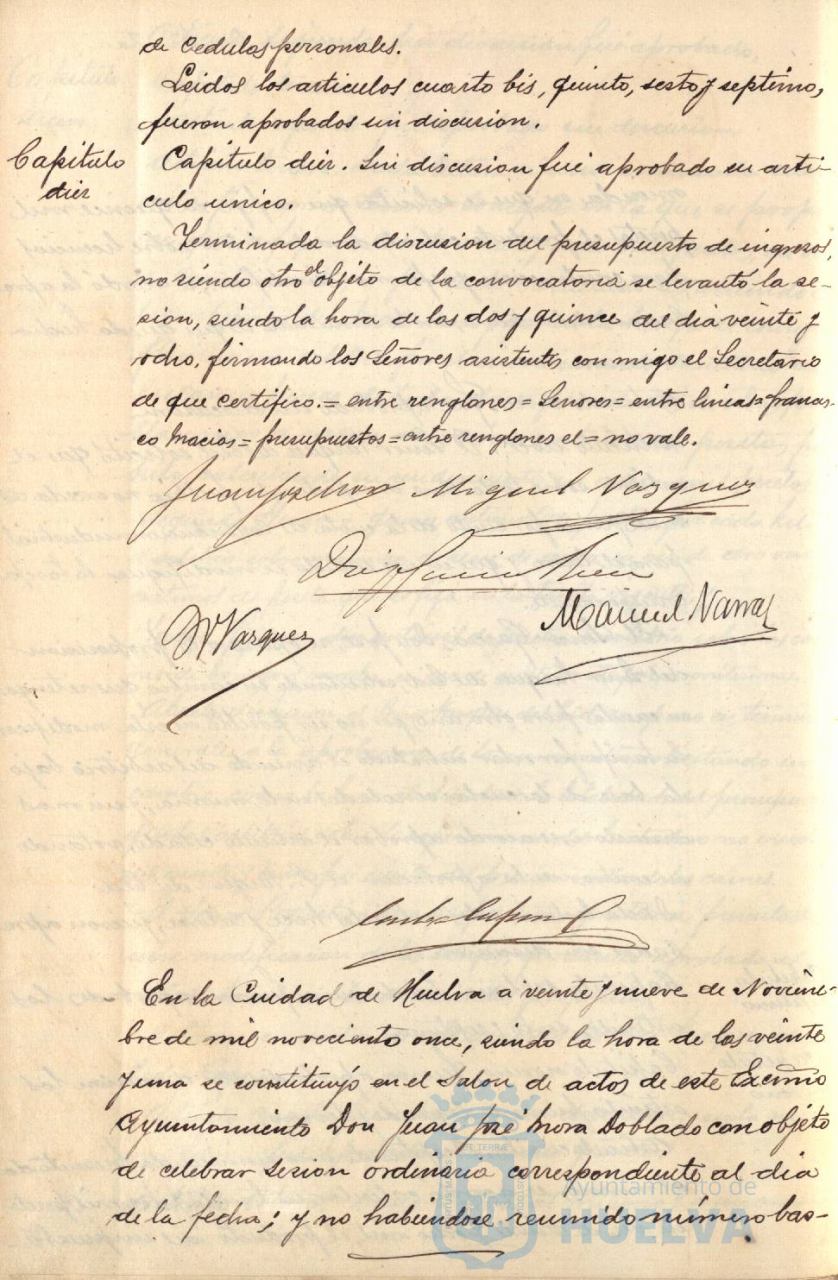 de cedulas personales.
Leidos los articulos cuarto bis, quinto, sesto y septimo,
fueron aprobados sin discusion.
Capitulo
diez
Capitulo diez. Sin discusion fué aprobado su arti-
culo unico.
Terminada la discusion del presupuesto de ingresos,
no siendo otro el objeto de la convocatoria se levantó la se-
sion, siendo la hora de las dos y quince del dia veinte y
ocho, firmando los Señores asistentes conmigo el Secretario
de que certifico.= entre renglones = Señores = entre lineas = francis-
co Macias = presupuestos = entre renglones el = no vale.
Juan José Mora Miguel Vazquez
Manuel Narvaez
Vazquez
En la Cuidad de Huelva a veinte y nueve de Noviem-
bre de mil noveciento once, siendo la hora de las veinte
y una se constituyó en el Salon de actos de este Excmo
Ayuntamiento Don Juan José Mora Doblado con objeto
de celebrar sesion ordinaria correspondiente al dia
de la fecha; y no habiendose reunido número bas-
Ayuntamiento de
HUELVA